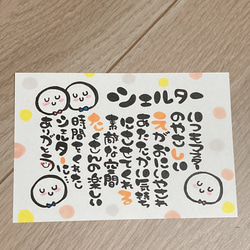 シェルター
いつもマスター
のやさしい
えがおにいやされ
あたたかい気持ち
にさせてくれる
素敵な空間
たくさんの楽しい
時間をくれた
シェルターに
ありがとう